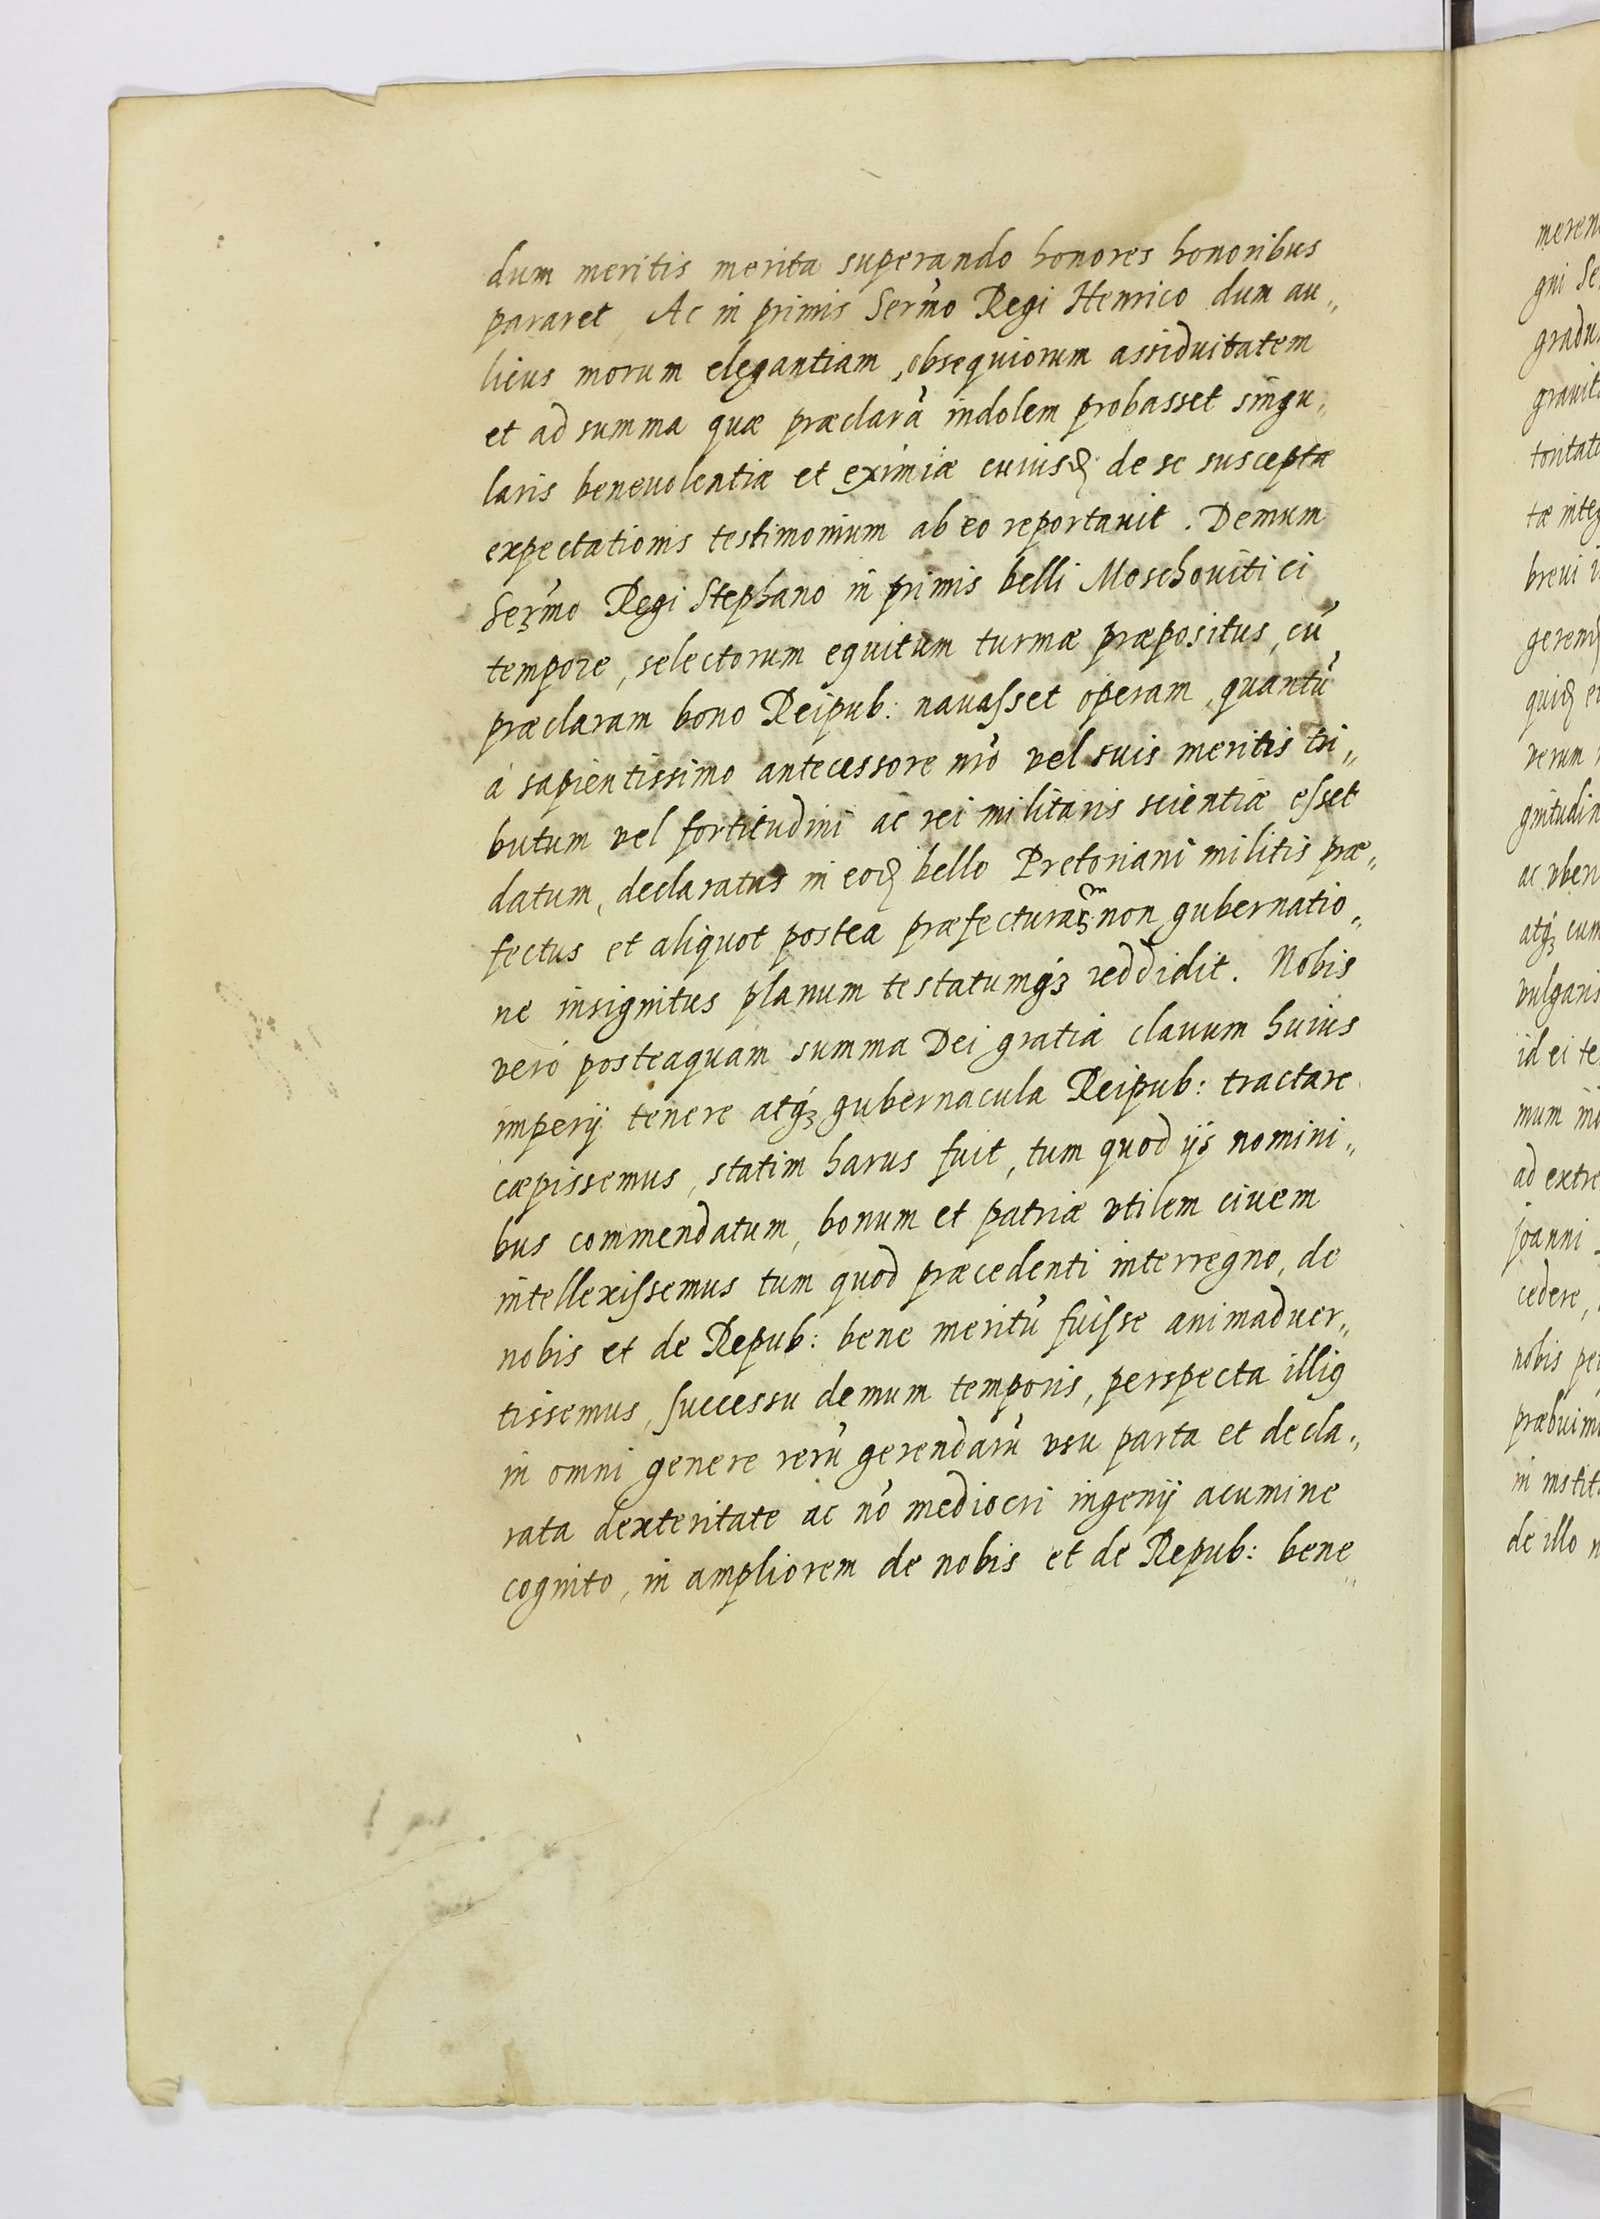 dum meritis merita superando honores honoribus
pararet, Ac in primis Serm̃o Regi Henrico dum au„
licus morum elegantiam, obsequiorum assiduitatem
et ad summa quæ præclarã indolem probasset singu„
laris beneuolentiæ et eximiæ cuiusꝗ de se susceptæ
expectationis testimonium ab eo reportauit. Demum
Serm̃o Regi Stephano in primis belli Moschouitici
tempore, selectorum equitum turmæ præpositus, cũ
præclaram bono Reipub: nauasset operam, quantũ
à sapientissimo antecessore nr̃o vel suis meritis tri„
butum vel fortitudini ac rei militaris scientiæ esset
datum, declaratus in eoꝗ bello Pretoriani militis præ„
fectus et aliquot postea præfecturarũ non gubernatio„
ne insignitus planum testatumqꝫ reddidit. Nobis
verò posteaquam summa Dei gratia clauum huius
imperij tenere atqꝫ gubernacula Reipub: tractare
cæpissemus, statim harus fuit, tum quod ijs nomini„
bus commendatum, bonum et patriæ vtilem ciuem
intellexissemus tum quod præcedenti interregno, de
nobis et de Repub: bene meritũ fuisse animaduer„
tissemus, successu demum temporis, perspecta illiꝰ
in omni genere rerũ gerendarũ vsu parta et decla„
rata dexteritate ac nõ mediocri ingenij acumine
cognito, in ampliorem de nobis et de Repub: bene„
gradu
tæ integ
ac vber
atqꝫ cum
vulgaris
id ei te
ad extre
joanni
cedere,
nobis pe
præbuim
in instit
de illo n